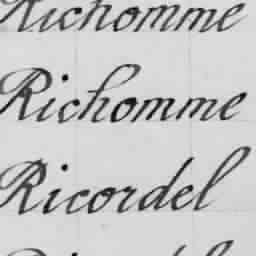 Richomme
Richomme
Ricordel